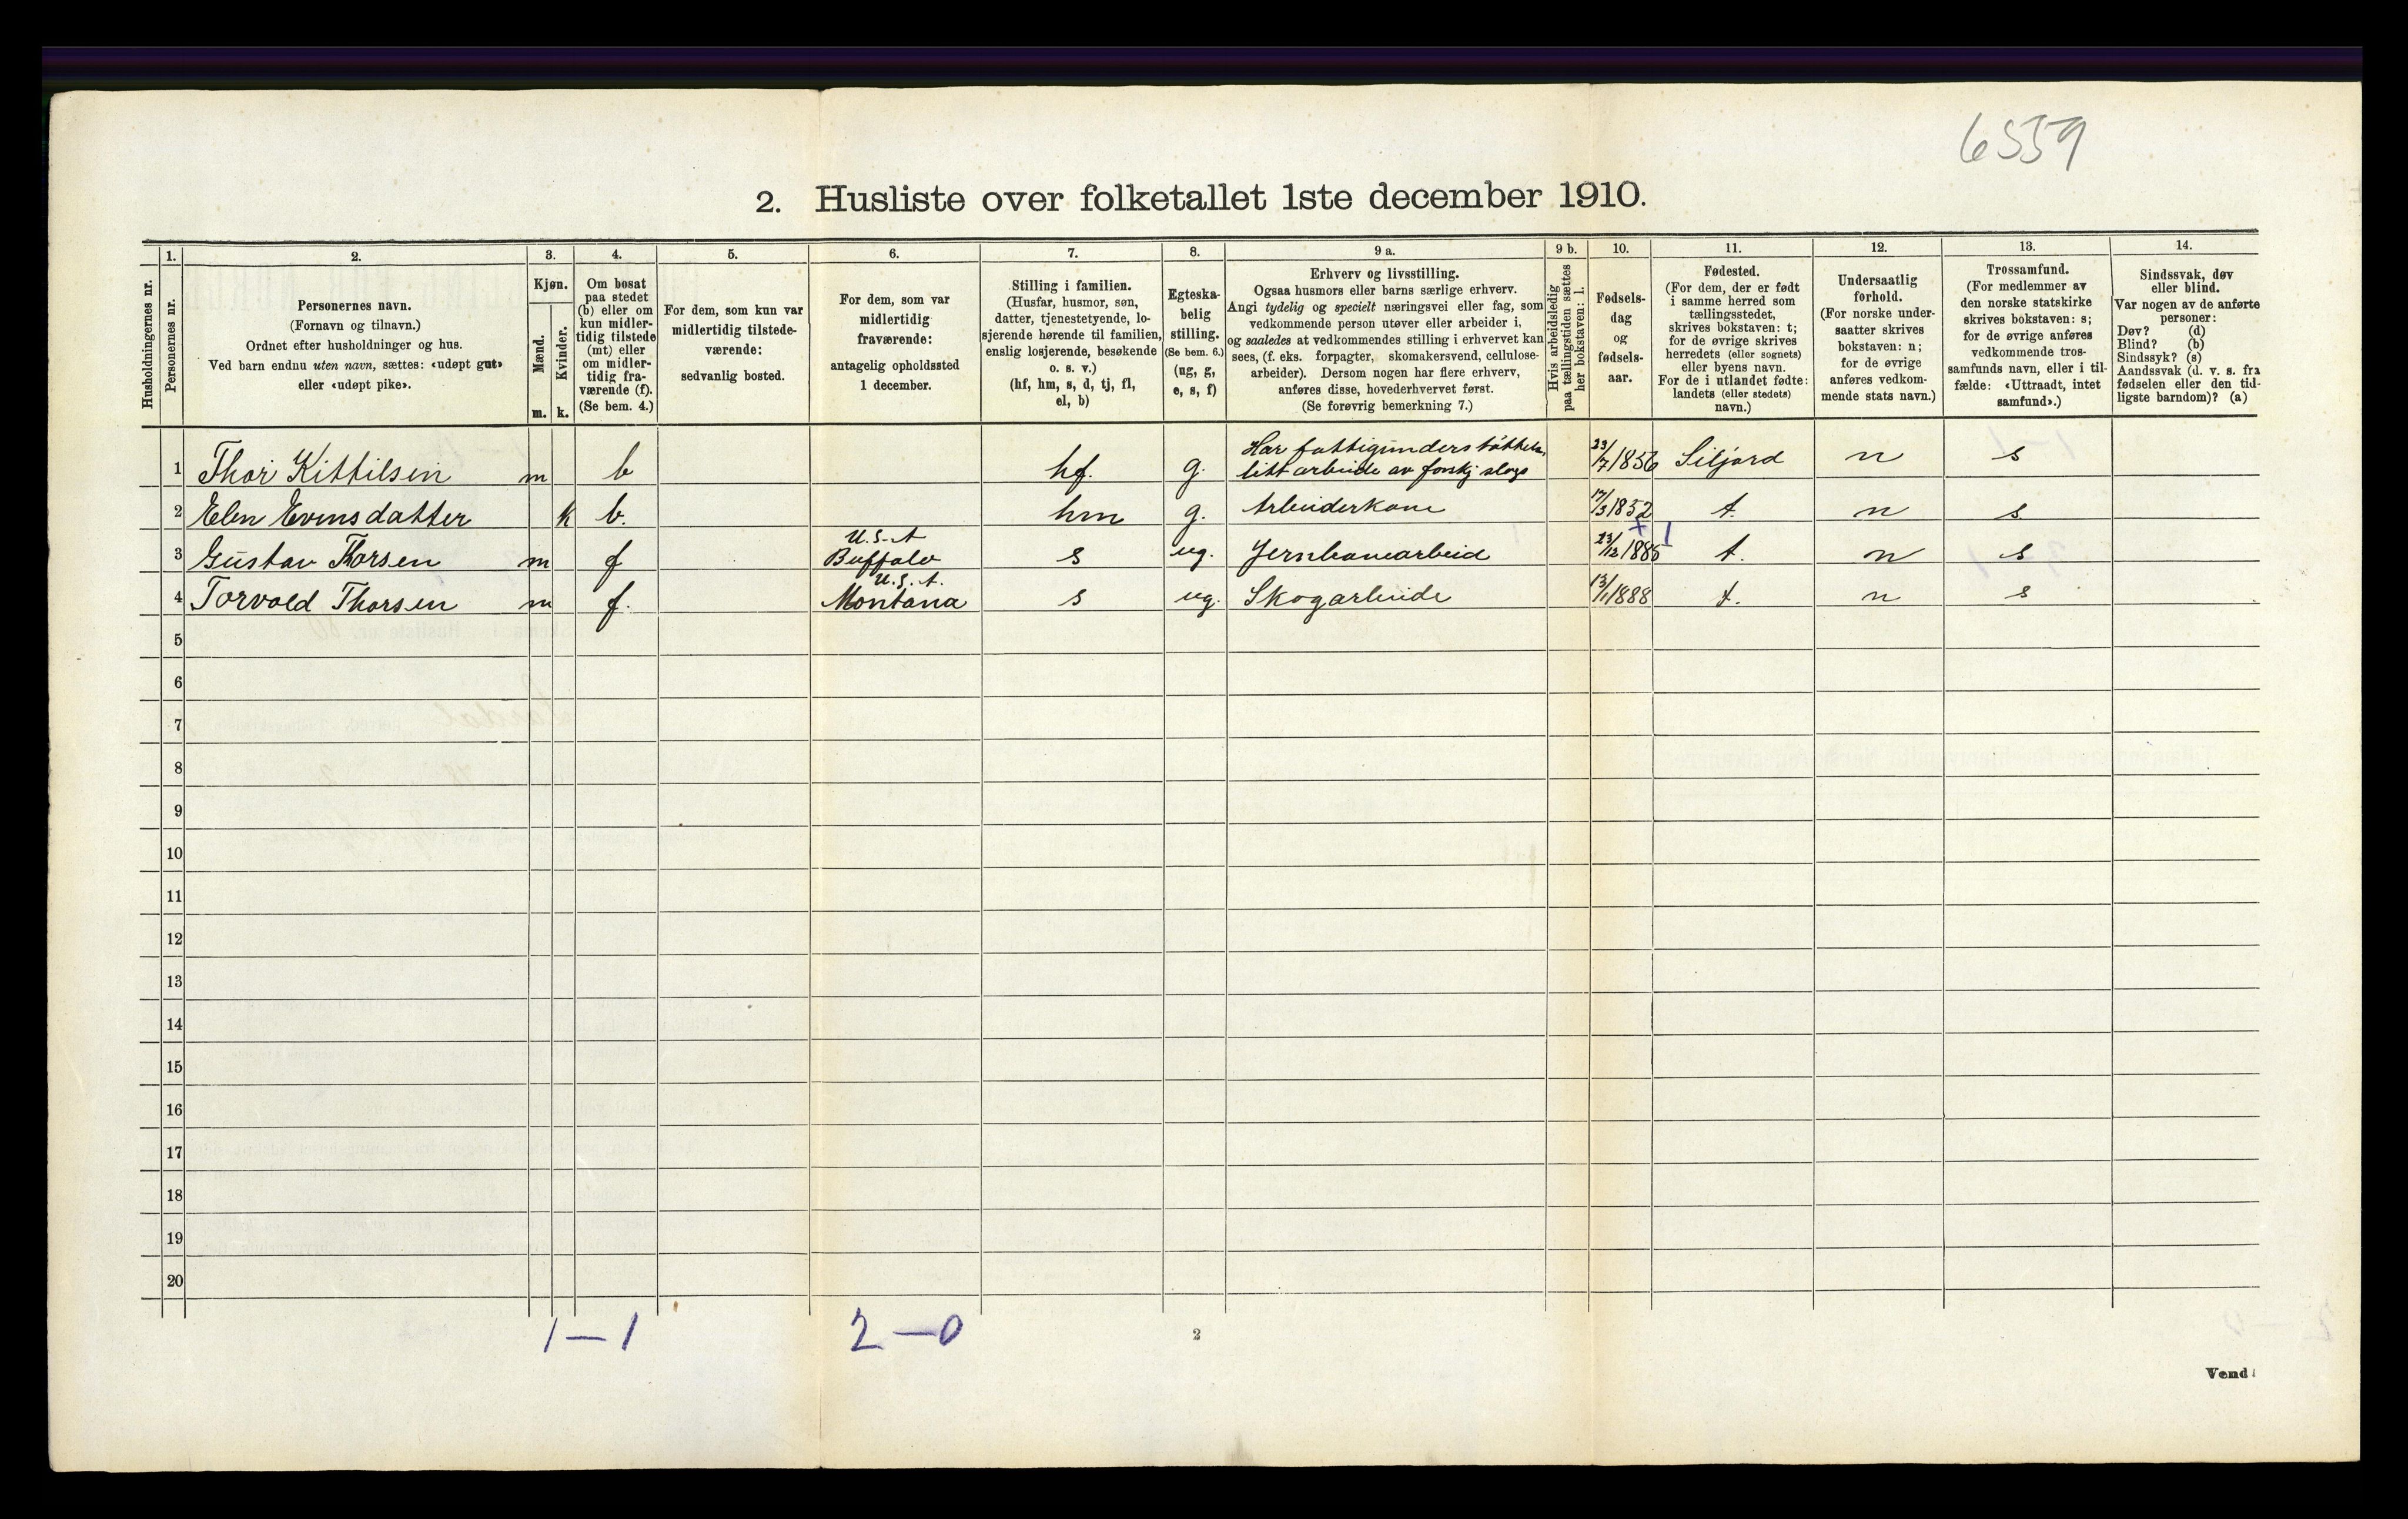 6559
2. Husliste over folketallet 1ste december 1910.
Husholdningernes nr.
1.
Personernes nr.
2.
Personernes navn.
(Fornavn og tilnavn.)
Ordnet efter husholdninger og hus.
Ved barn endnu uten navn, sættes: «udøpt gut»
eller «udøpt pike».
3.
Kjøn.
Mænd.
Kvinder.
m. k.
4.
Om bosat
paa stedet
(b) eller om
kun midler-
tidig tilstede
(mt) eller
om midler-
tidig fra-
værende (f).
(Se bem. 4.)
5.
For dem, som kun var
midlertidig tilstede-
værende:
sedvanlig bosted.
6.
For dem, som var
midlertidig
fraværende:
antagelig opholdssted
1 december.
7.
Stilling i familien.
(Husfar, husmor, søn,
datter, tjenestetyende, lo-
sjerende hørende til familien,
enslig losjerende, besøkende
o. s. v.)
(hf, hm, s, d, tj, fl,
el, b)
8.
Egteska-
belig
stilling.
(Se bem. 6.)
(ug, g,
e, s, f)
9 a.
Erhverv og livsstilling.
Ogsaa husmors eller barns særlige erhverv.
Angi tydelig og specielt næringsvei eller fag, som
vedkommende person utøver eller arbeider i,
og saaledes at vedkommendes stilling i erhvervet kan
sees, (f. eks. forpagter, skomakersvend, cellulose-
arbeider). Dersom nogen har flere erhverv,
anføres disse, hovederhvervet først.
(Se forøvrig bemerkning 7.)
9 b.
Hvis arbeidsledig
paa tællingstiden sættes
her bokstaven: l.
10.
Fødsels-
dag
og
fødsels-
aar.
11.
Fødested.
(For dem, der er født
i samme herred som
tællingsstedet,
skrives bokstaven: t;
for de øvrige skrives
herredets (eller sognets)
eller byens navn.
For de i utlandet fødte:
landets (eller stedets)
navn.)
12.
Undersaatlig
forhold.
(For norske under-
saatter skrives
bokstaven: n;
for de øvrige
anføres vedkom-
mende stats navn.)
13.
Trossamfund.
(For medlemmer av
den norske statskirke
skrives bokstaven: s;
for de øvrige anføres
vedkommende tros-
samfunds navn, eller i til-
fælde: «Uttraadt, intet
samfund».)
14.
Sindssvak, døv
eller blind.
Var nogen av de anførte
personer:
Døv? (d)
Blind? (b)
Sindssyk? (s)
Aandssvak (d. v. s. fra
fødselen eller den tid-
ligste barndom)? (a)
Har fattigunderstøttelse,
1 Thor Kittilsen m b hf. g. litt arbeide av forskj slags 23/7 1856 Siljord n s
2 Elen Evensdatter k b. hm g. Arbeiderkone 17/3 1852 t. n s.
U.S.A
3 Gustav Thorsen m f Buffalo s ug. Jernbanearbeid 23/12 1885 t. n s
U.S.A.
4 Torvald Thorsen m f. Montana s ug. Skogarbeide 13/1 1888 t. n s
5
6
7
8
9
10
11
12
13
14
15
16
17
18
19
20
1-1 2-0
2
Vend!